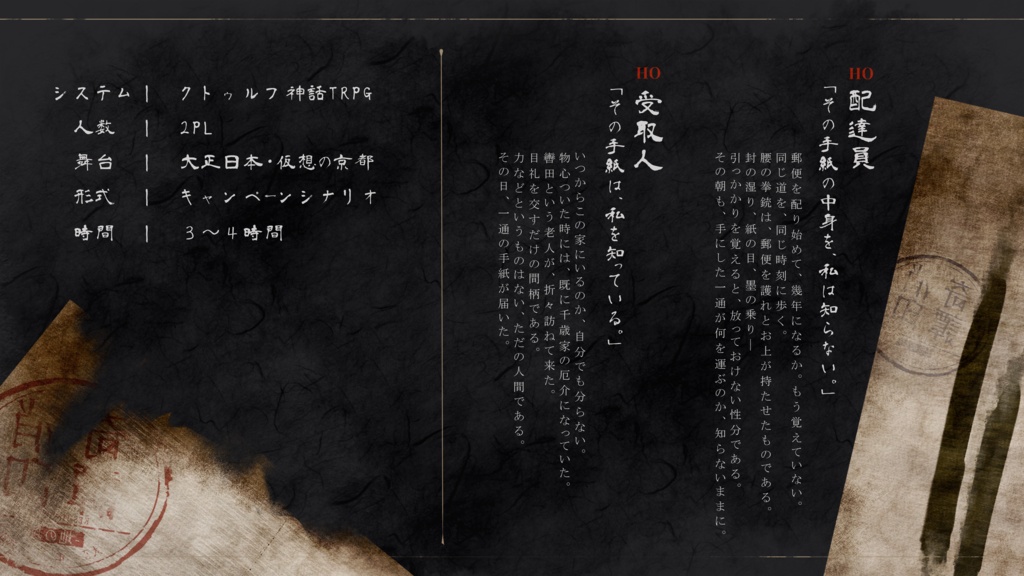 HO
配達員
「その手紙の中身を、私は知らない。」
郵便を配り始めて、幾年になるか、もう覚えていない。
同じ道を、同じ時刻に歩く。
腰の拳銃は、郵便を護れとお上が持たせたものである。
封の湿り、紙の目、墨の乗り―
引っかかりを覚えると、放っておけない性分である。
その朝も、手にした一通が何を運ぶのか、知らないままに。
HO
受取人
「その手紙は、私を知っている。」
いつからこの家にいるのか、自分でも分らない。
物心ついた時には、既に千歳家の厄介になっていた。
轡田という老人が、折々訪ねて来た。
目礼を交すだけの間柄である。
力などというものはない、ただの人間である。
その日、一通の手紙が届いた。
システム | クトゥルフ神話TRPG
人数 | 2PL
舞台 | 大正日本・仮想の京都
形式 | キャンペーンシナリオ
時間 | 3～4時間